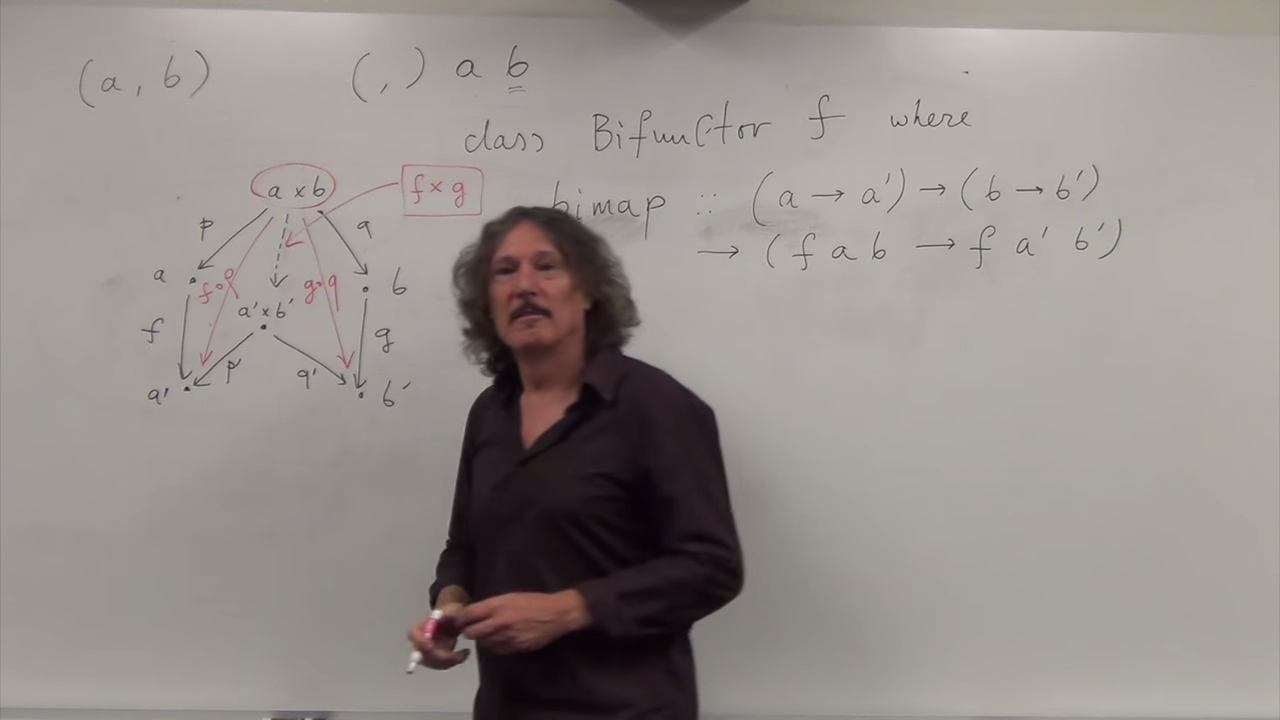 (a, b) (,) a b
class Bifunctor f where
a × b f × g
bimap :: (a → a') → (b → b')
→ (f a b → f a' b')
p q
a f∘p g∘q b
a' × b'
f g
p' q'
a' b'